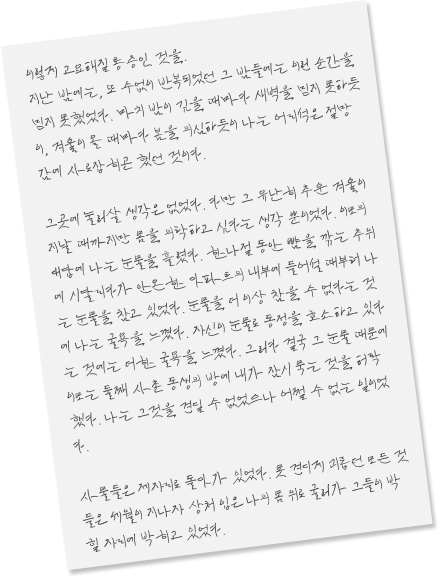 이렇게 고요해질 통증인 것을.
지난 밤에는, 또 수없이 반복되었던 그 밤들에는 이런 순간을
믿지 못했었다. 마치 밤이 깊을 때마다 새벽을 믿지 못하듯
이, 겨울이 올 때마다 봄을 의심하듯이 나는 어리석은 절망
감에 사로잡히곤 했던 것이다.
그곳에 눌러살 생각은 없었다. 다만 그 유난히 추운 겨울이
지날 때까지만 몸을 의탁하고 싶다는 생각 뿐이었다. 이모의
대답에 나는 눈물을 흘렸다. 한나절 동안 뺨을 깎는 추위
에 시달리다가 안온한 아파트의 내부에 들어설 때부터 나
는 눈물을 참고 있었다. 눈물을 더 이상 참을 수 없다는 것
에 나는 굴욕을 느꼈다. 자신의 눈물로 동정을 호소하고 있다
는 것에는 더한 굴욕을 느꼈다. 그러다 결국 그 눈물 때문에
이모는 둘째 사촌 동생의 방에 내가 잠시 묵는 것을 허락
했다. 나는 그것을 견딜 수 없었으나 어쩔 수 없는 일이었
다.
사물들은 제자리로 돌아가 있었다. 못 견디게 괴롭던 모든 것
들은 세월이 지나자 상처 입은 나의 몸 위로 굴러가 그들이 박
힐 자리에 박히고 있었다.